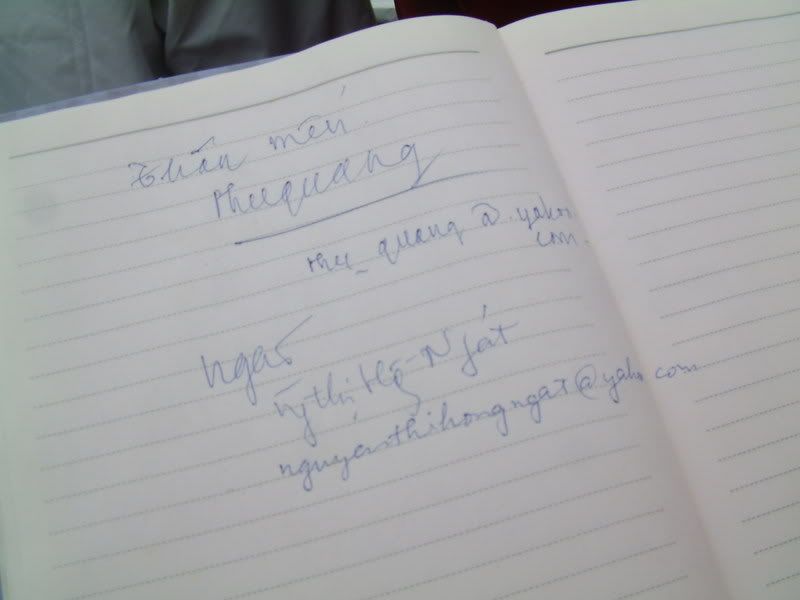 thân mến
thuquang
thu_quang@yahoo
com.
Ngát
Ng thị Hg Ngát
nguyenthihongngat@yahoo.com